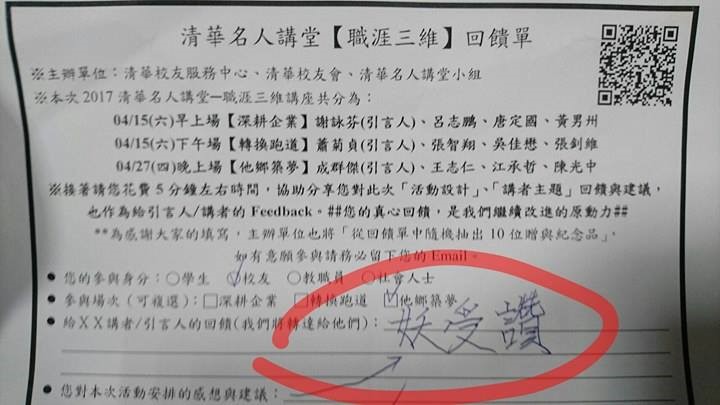 清華名人講堂【職涯三維】回饋單
※主辦單位：清華校友服務中心、清華校友會、清華名人講堂小組
※本次 2017 清華名人講堂─職涯三維講座共分為：
04/15(六)早上場【深耕企業】謝詠芬(引言人)、呂志鵬、唐定國、黃男州
04/15(六)下午場【轉換跑道】蕭菊貞(引言人)、張智翔、吳佳懋、張釗維
04/27(四)晚上場【他鄉築夢】成群傑(引言人)、王志仁、江承哲、陳光中
※接著請您花費 5 分鐘左右時間，協助分享您對此次「活動設計」、「講者主題」回饋與建議，
也作為給引言人/講者的 Feedback。##您的真心回饋，是我們繼續改進的原動力##
**為感謝大家的填寫，主辦單位也將「從回饋單中隨機抽出 10 位贈與紀念品」，
如有意願參與請務必留下您的 Email。
• 您的參與身分：○學生 ○校友 ○教職員 ○社會人士
• 參與場次（可複選）：□深耕企業 □轉換跑道 ☑他鄉築夢
• 給ＸＸ講者/引言人的回饋(我們將轉達給他們)：妖受讚
• 您對本次活動安排的感想與建議：